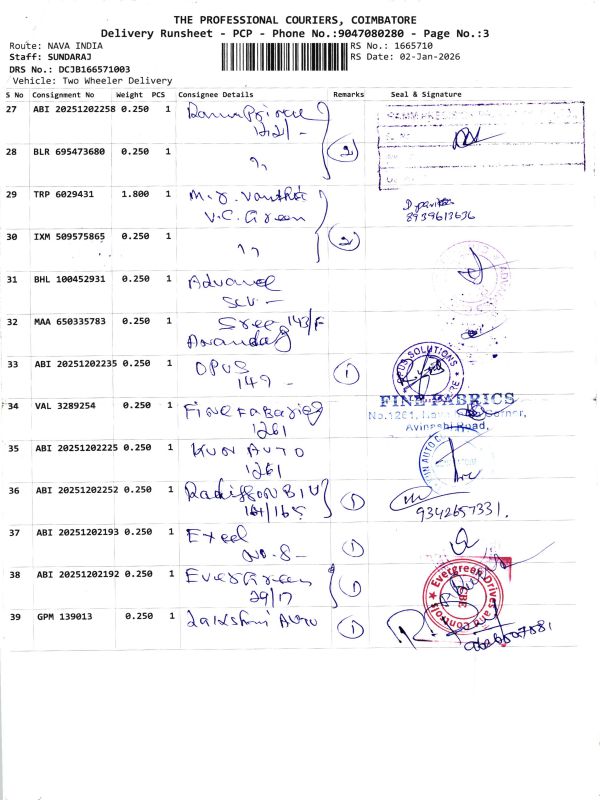 THE PROFESSIONAL COURIERS, COIMBATORE
Delivery Runsheet - PCP - Phone No.:9047080280 - Page No.:3
Route: NAVA INDIA
RS No.: 1665710
Staff: SUNDARAJ
RS Date: 02-Jan-2026
DRS No.: DCJB166571003
Vehicle: Two Wheeler Delivery
S No Consignment No Weight PCS Consignee Details Remarks Seal & Signature
27 ABI 20251202258 0.250 1
1221 -
28 BLR 695473680 0.250 1 ,, 2
29 TRP 6029431 1.800 1 M.J. Vanthi
V.C. Green
8939613636
30 IXM 509575865 0.250 1 ,, 2
31 BHL 100452931 0.250 1 Advance
32 MAA 650335783 0.250 1 Sree 143/F
33 ABI 20251202235 0.250 1 OPUS 1
149 -
OPUS SOLUTIONS
34 VAL 3289254 0.250 1
1261
FINE FABRICS
No.1261, Corner,
Avinashi Road,
35 ABI 20251202225 0.250 1 KUN AUTO
1261
36 ABI 20251202252 0.250 1 Radisson BLU 1
161/165
9342657331.
37 ABI 20251202193 0.250 1 Excel 1
NO. 8 -
38 ABI 20251202192 0.250 1 Evergreen 1
29/17
Evergreen Drives and Controls
CBE
39 GPM 139013 0.250 1 Lakshmi Auto 1